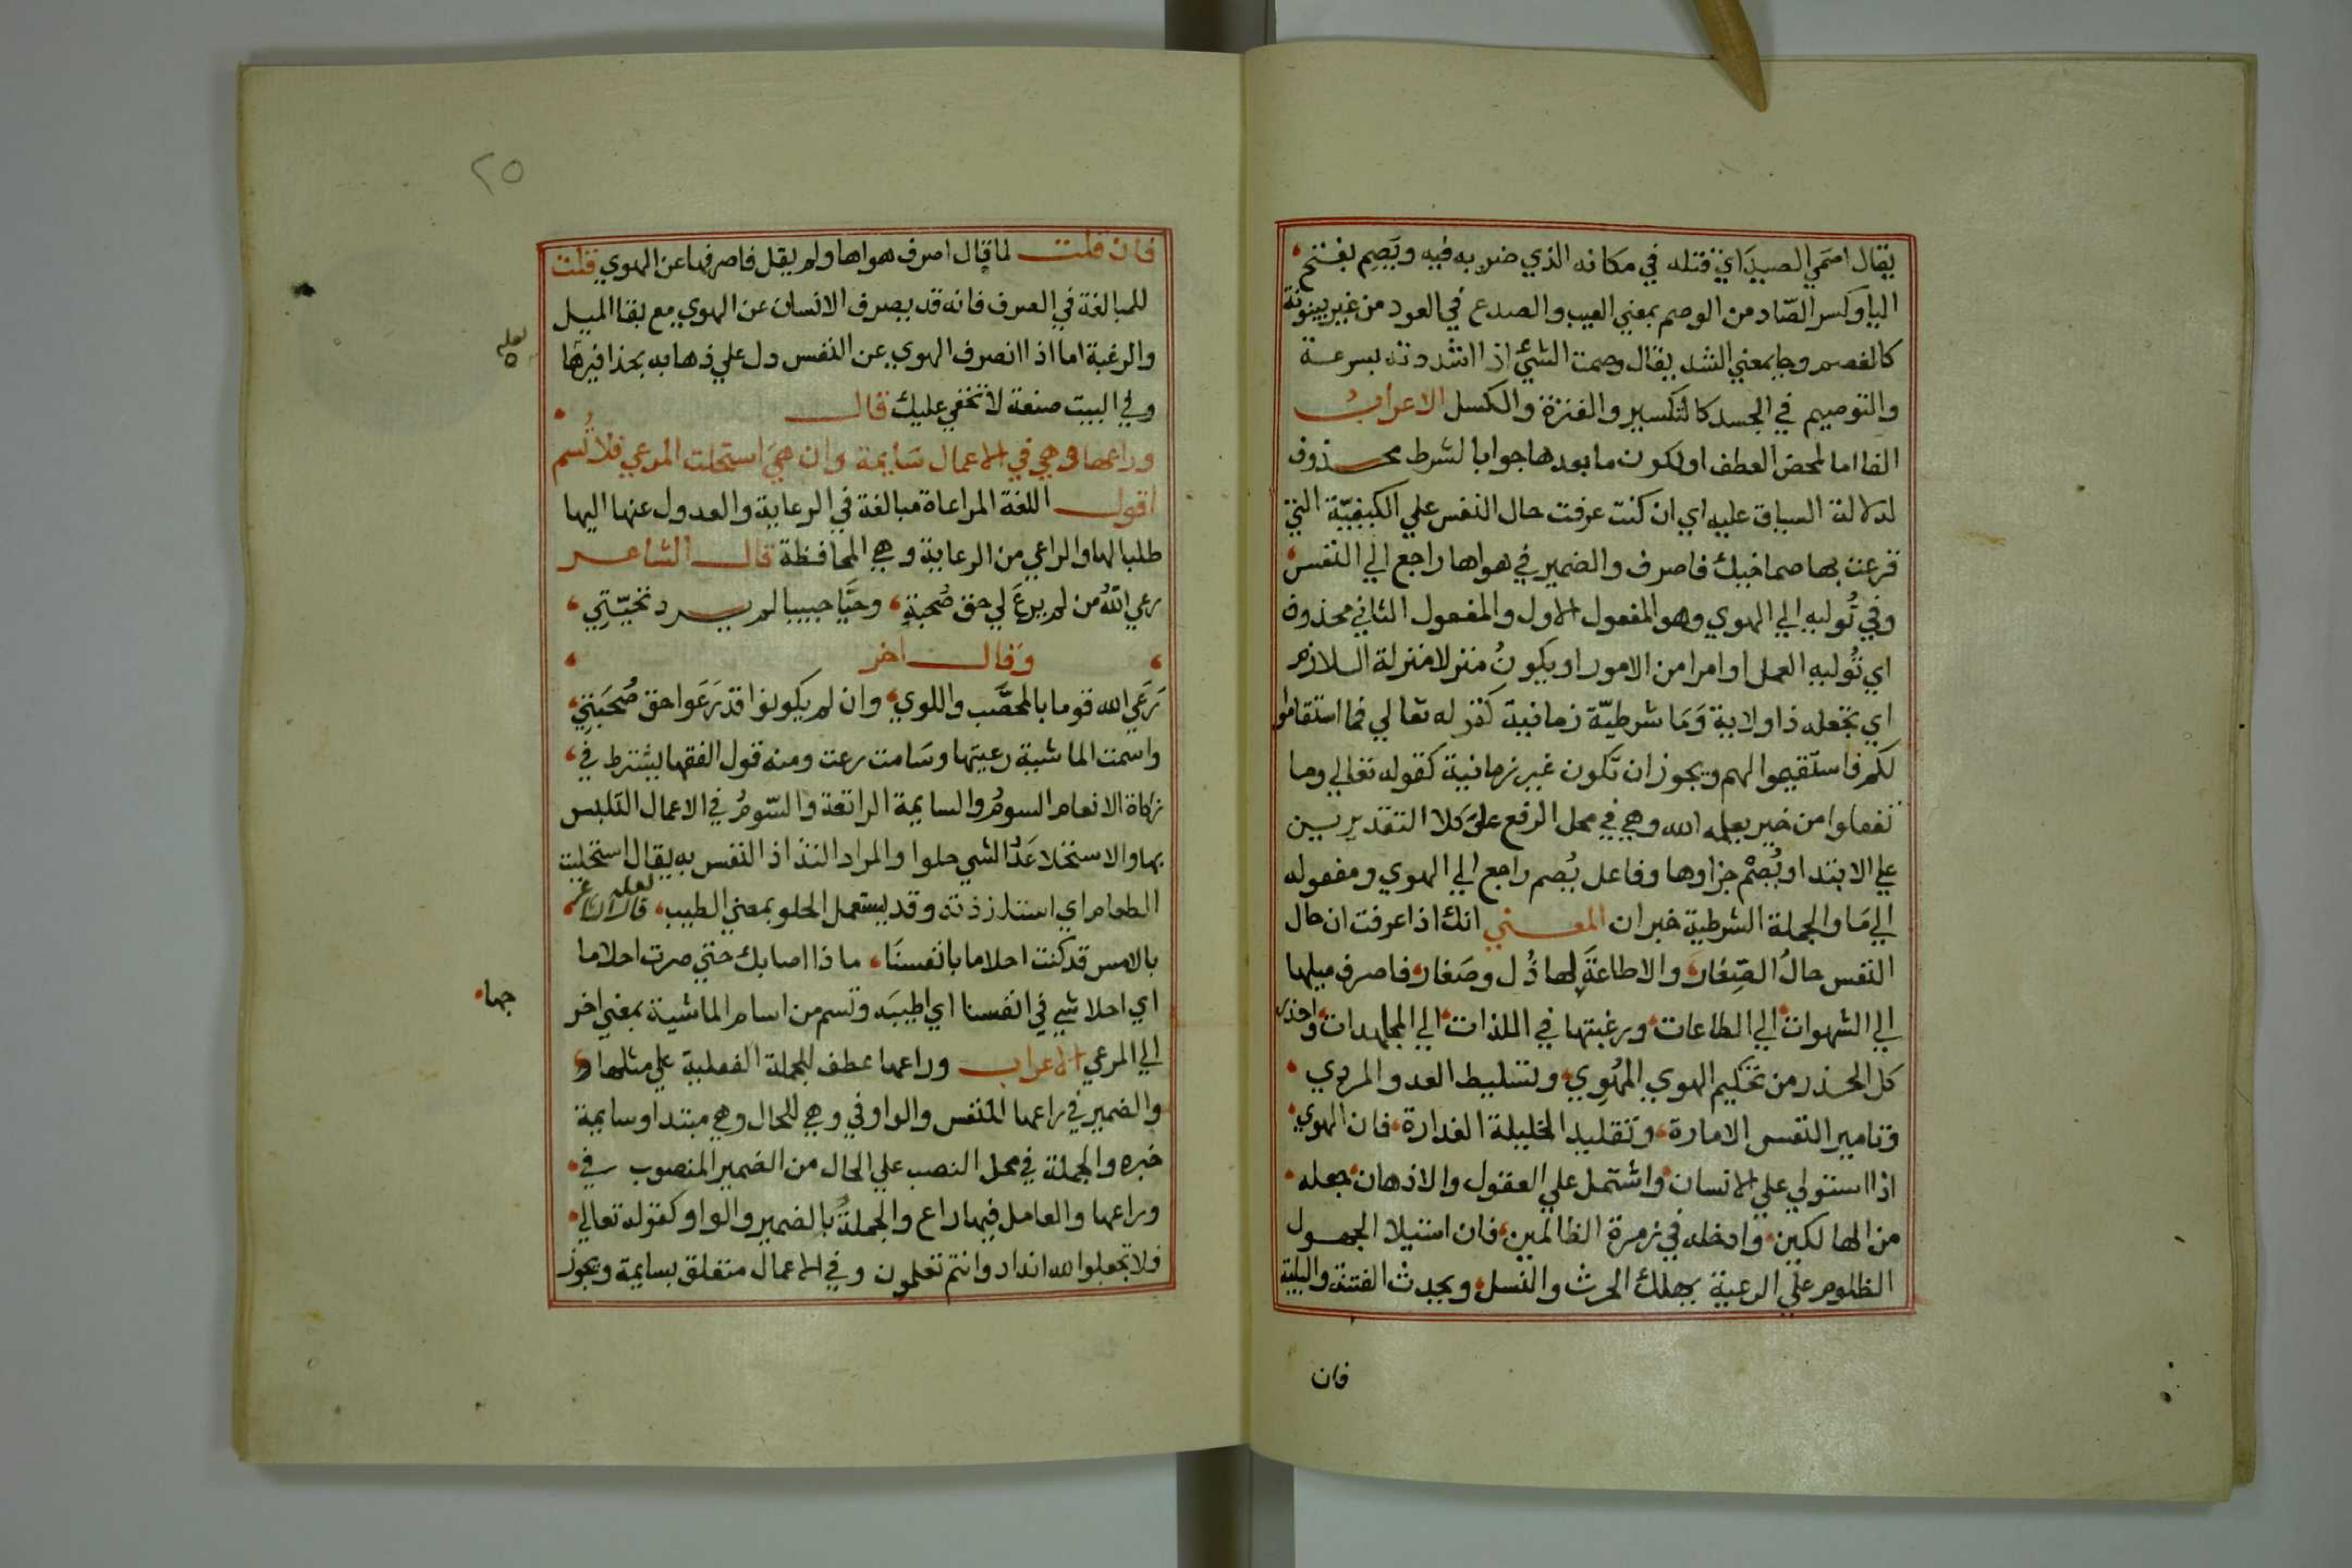 يقال اصمي الصيد اي قتله في مكانه الذي ضربه فيه ويَصِم بفتح
اليا وكسر الصّاد من الوصم بمعني العيب والصدع في العود من غير بينونة
كالفصم وجا بمعني الشد يقال وصمت الشئ اذا اشددته بسرعة
والتوصيم في الجسد كالتكسير والفترة والكسل الاعراب
الفا اما لمحض العطف او لكون ما بعدها جوابا لشرط محذوف
لدلالة السياق عليه اي ان كنت عرفت حال النفس علي الكيفيّة التي
قرعت بها صماخيك فاصرف والضمير في هواها راجع الي النفس
وفي تُوليه الي الهوي وهو المفعول الاول والمفعول الثاني محذوف
اي تُوليه العمل او امرا من الامور او يكونُ منزلا منزلة اللازم
اي تجعله ذا ولاية وَمَا شرطيّة زمانية كقوله تعالي فما استقاموا
لكم فاستقيموا لهم ويجوز ان تكون غير زمانية كقوله تعالي وما
تفعلوا من خير يعلمه الله وهي في محل الرفع علىَ كلا التقديرين
علي الابتدا ويُصْم جزاوها وفاعل يُصم راجع الي الهوي ومفعوله
الي مَا والجملة الشرطية خبر ان المعني انك اذا عرفت ان حال
النفس حالُ الصِغار والاطاعةَ لها ذُل وصَغار فاصرف ميلها
الي الشهوات الي الطاعات ورغبتها في الملذات الي المجاهدات واحذر
كل الحذر من تحكيم الهوي المُهْوِي وتسليط العدو المردي
وتامير النفس الامارة وتقليد الخليلة الغدارة فان الهوي
اذا استولي علي الانسان واشتمل علي العقول والاذهان جعله
من الهالكين وادخله في زمرة الظالمين فان استيلا الجهول
الظلوم علي الرعية يهلك الحرث والنسل ويحدث الفتنة والبلية
فان
٢٥
فان قلت لما قال اصرف هواها ولم يقل فاصرفها عن الهوي قلت
للمبالغة في الصرف فانه قد يصرف الانسان عن الهوي مع بقا الميل
والرغبة اما اذا انصرف الهوي عن النفس دل علي ذهابه بحذافيرها
لعله ه
وفي البيت صنعة لا تخفي عليك قال
وراعها وهي في الاعمال سَايمة وان هي استحلت المرعي فلا تُسم
اقول اللغة المراعاة مبالغة في الرعاية والعدول عنها اليها
طلبا لها والراعي من الرعاية وهي المحافظة قال الشاعر
رعي اللهُ من لم يرعَ لي حق صُحبةٍ وحَيَّا حبيبا لم يرد تحيّتِي
وقال اخر
رَعَي الله قوما بالمحصَّب واللوي وان لم يكونوا قد رَعَوا حق صُحبَتِي
واسمت الماشية رعيتها وسَامت رعت ومنه قول الفقها يشترط في
زكاة الانعام السومُ والسايمة الراتعة والسّومُ في الاعمال التلبس
بها والاستحلا عَدُّ الشي حلوا والمراد التذاذ النفس به يقال استحليت
الطعام اي استلذذته وقد يستعمل الحلو بمعني الطيب قال الشاعر
لعله
بالامس قد كنت احلاما بانفسنَا ماذا اصابك حتي صرت احلاما
اي احلا شي في انفسنا اي اطيبَه وتسم من اسام الماشية بمعني اخر
جها
الي المرعي الاعراب وراعها عطف للجملة الفعلية علي مثلها و
والضمير في راعها للنفس والواو في وهي للحال وهي مبتدا وسايمة
خبره والجملة في محل النصب علي الحال من الضمير المنصوب في
وراعها والعامل فيها راع والجملةُ بالضمير والواو كقوله تعالي
فلا تجعلوا لله اندادا وانتم تعلمون وفي الاعمال متعلق بسايمة ويجوز